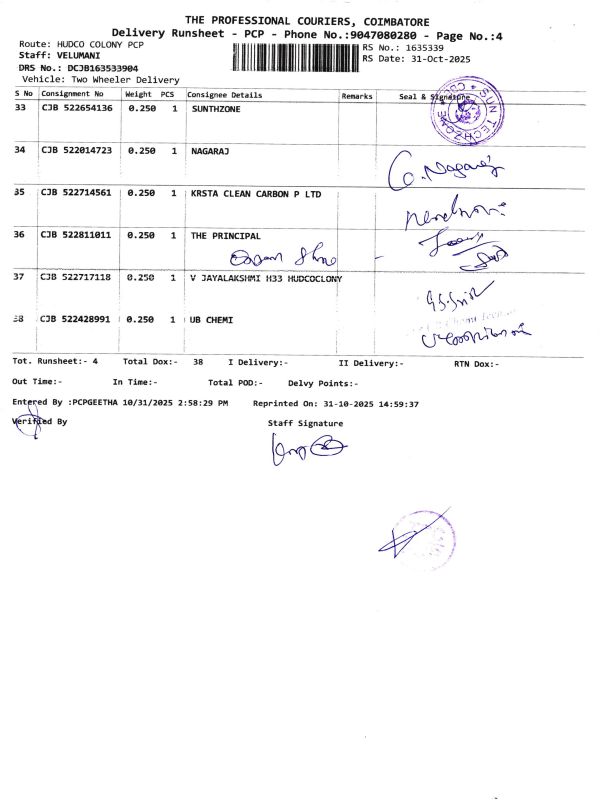 THE PROFESSIONAL COURIERS, COIMBATORE
Delivery Runsheet - PCP - Phone No.:9047080280 - Page No.:4
Route: HUDCO COLONY PCP RS No.: 1635339
Staff: VELUMANI RS Date: 31-Oct-2025
DRS No.: DCJB163533904
Vehicle: Two Wheeler Delivery
S No Consignment No Weight PCS Consignee Details Remarks Seal & Signature
33 CJB 522654136 0.250 1 SUNTHZONE
SUN TECHZONE
34 CJB 522014723 0.250 1 NAGARAJ
G. Nagaraj
35 CJB 522714561 0.250 1 KRSTA CLEAN CARBON P LTD
36 CJB 522811011 0.250 1 THE PRINCIPAL
37 CJB 522717118 0.250 1 V JAYALAKSHMI H33 HUDCOCLONY
38 CJB 522428991 0.250 1 UB CHEMI
Tot. Runsheet:- 4 Total Dox:- 38 I Delivery:- II Delivery:- RTN Dox:-
Out Time:- In Time:- Total POD:- Delvy Points:-
Entered By :PCPGEETHA 10/31/2025 2:58:29 PM Reprinted On: 31-10-2025 14:59:37
Verified By Staff Signature